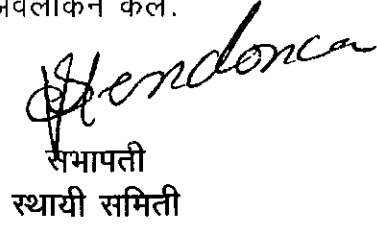 अवलोकन केले.
Mendonca
सभापती
स्थायी समिती